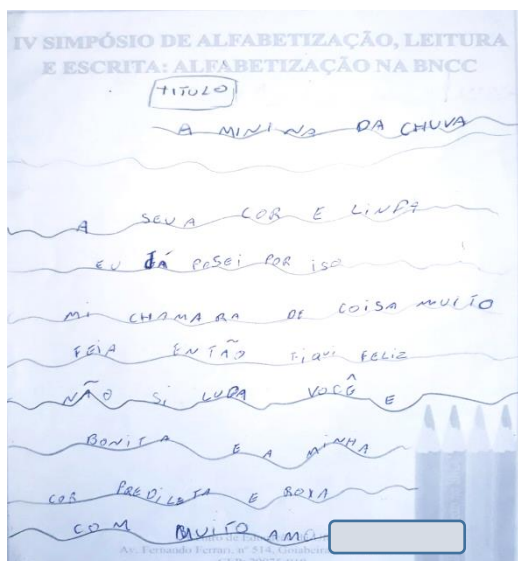 IV SIMPÓSIO DE ALFABETIZAÇÃO, LEITURA
E ESCRITA: ALFABETIZAÇÃO NA BNCC
TITULO
A MININA DA CHUVA
A SEUA COR E LINDA
EU JÁ PASEI POR ISO
MI CHAMARA DE COISA MUITO
FEIA ENTÃO FIQUI FELIZ
NÃO SI CUPA VOCÊ E
BONITA E A MINHA
COR PREDILETA E ROXA
COM MUITO AMO
Av. Fernando Ferrari, nº 514, Goiabeira